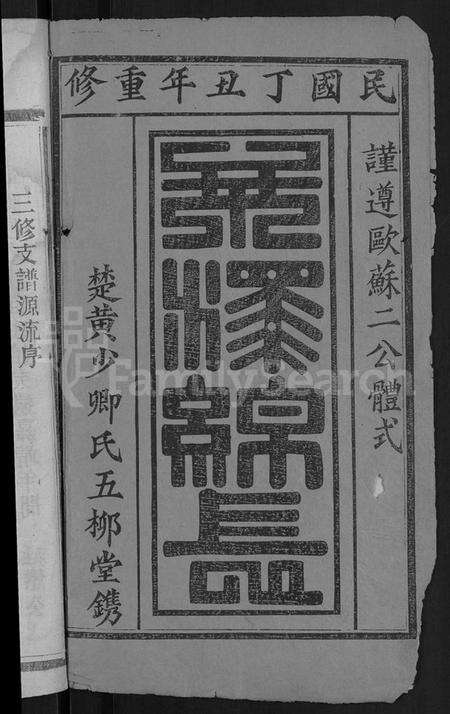 民國丁丑年重修
謹遵歐蘇二公體式
楚黃少卿氏五柳堂鐫
三修支譜源流序
FamilySearch